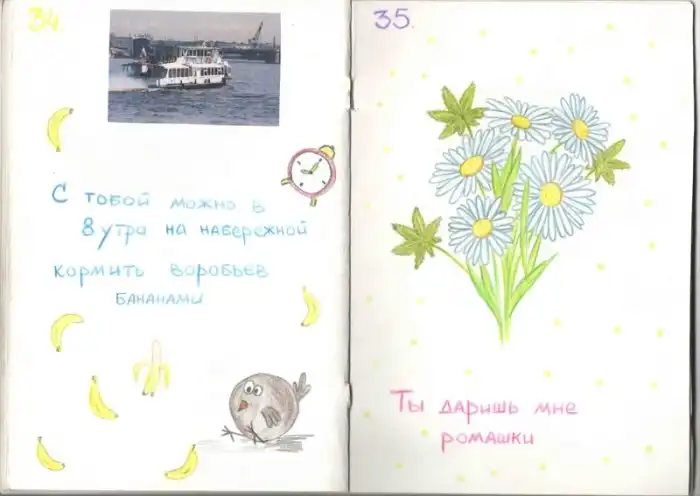 34.
С тобой можно в
8 утра на набережной
кормить воробьев
бананами
35.
Ты даришь мне
ромашки